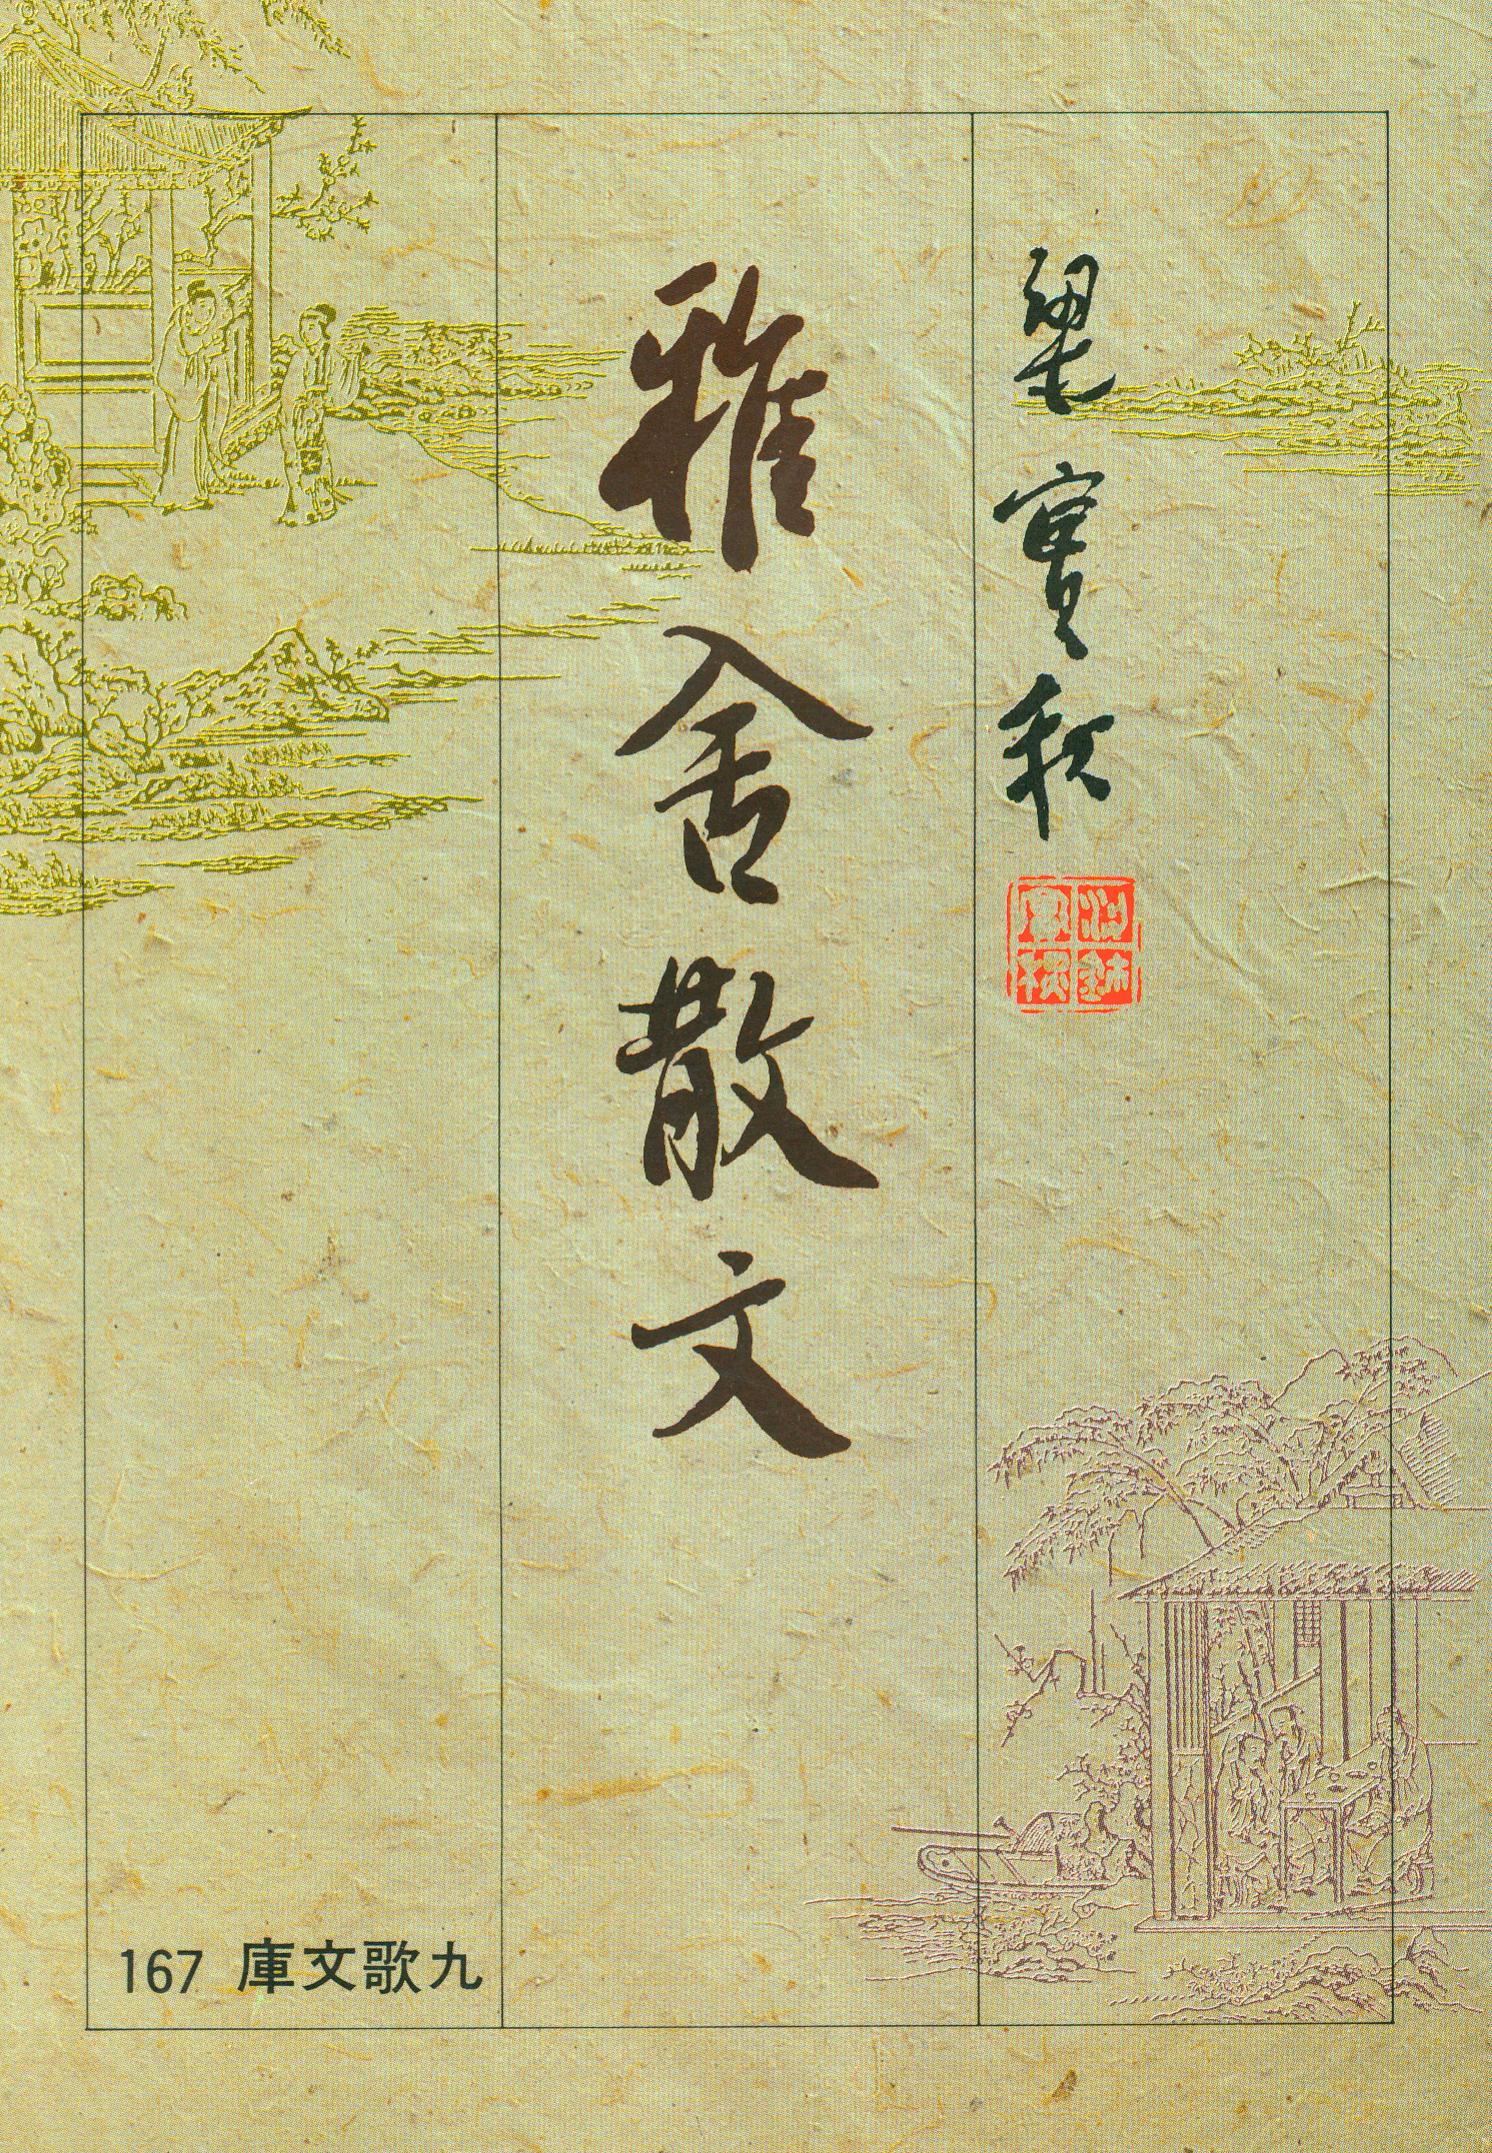 梁實秋
雅舍散文
九歌文庫 167